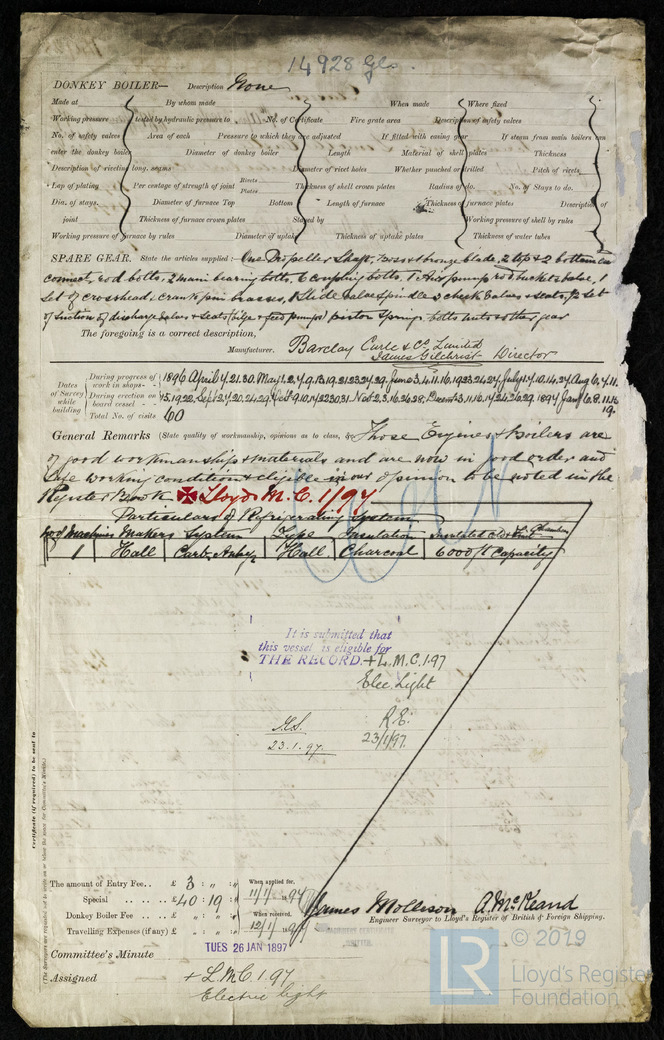 14928 Gls.
DONKEY BOILER— Description None
Made at By whom made When made Where fixed
Working pressure tested by hydraulic pressure to No. of Certificate Fire grate area Description of safety valves
No. of safety valves Area of each Pressure to which they are adjusted If fitted with easing gear If steam from main boilers can
enter the donkey boiler Diameter of donkey boiler Length Material of shell plates Thickness
Description of riveting long. seams Diameter of rivet holes Whether punched or drilled Pitch of rivets
Lap of plating Per centage of strength of joint Rivets Plates Thickness of shell crown plates Radius of do. No. of Stays to do.
Dia. of stays. Diameter of furnace Top Bottom Length of furnace Thickness of furnace plates Description of
joint Thickness of furnace crown plates Stayed by Working pressure of shell by rules
Working pressure of furnace by rules Diameter of uptake Thickness of uptake plates Thickness of water tubes
SPARE GEAR. State the articles supplied:— One Propeller Shaft, Boss & bronze blade, 2 top & 2 bottom end
connect. rod bolts, 2 main bearing bolts, 6 coupling bolts, 1 Air pump rod bucket & valve, 1
Set of crosshead, crank pin brasses, 1 Slide valve spindle 2 check valves & seats, ½ set
of suction & discharge valves & seats (bilge & feed pumps) piston springs bolts nuts & other gear
The foregoing is a correct description,
Manufacturer. Barclay Curle & Co. Limited
James Gilchrist Director
Dates of Survey while building
During progress of work in shops - - 1896 April 4.21.30. May 1.2.4.9.13.19.21.23.27.29. June 3.4.11.16.19.23.24.27. July 1.4.10.14.24. Aug 6.7.11.
During erection on board vessel - - - 15.19.22. Sept 2.4.20.24.29. Oct 9.10.14.22.30.31. Nov 2.3.16.26.28. Decem 3.11.16.17.24.26.29. 1897 Jan 6.8.11.16
19.
Total No. of visits 60
General Remarks (State quality of workmanship, opinions as to class, &c. These Engines & Boilers are
of good workmanship & materials and are now in good order and
safe working condition & eligible in our opinion to be noted in the
Register Book ✠ Lloyds M.C. 1/97
Particulars of Refrigerating System
No of Machines Makers System Type Insulation
1 Hall Carb. Anhy. Hall Charcoal 6000 ft capacity
It is submitted that
this vessel is eligible for
THE RECORD. + L.M.C. 1.97
Elec. Light
23.1.97.
R.E.
23/1/97.
Certificate (if required) to be sent to
The amount of Entry Fee . . £ 3 : " : " When applied for,
Special . . . . . £ 40 : 19 : " 11/1/1897
Donkey Boiler Fee . . . £ " : " : " When received,
Travelling Expenses (if any) £ " : " : " 12/1/1897
James Mollison A. McKeand
Engineer Surveyor to Lloyd's Register of British & Foreign Shipping.
TUES 26 JAN 1897
Committee's Minute
Assigned + L.M.C. 1.97
Electric light
LR © 2019
Lloyd's Register
Foundation